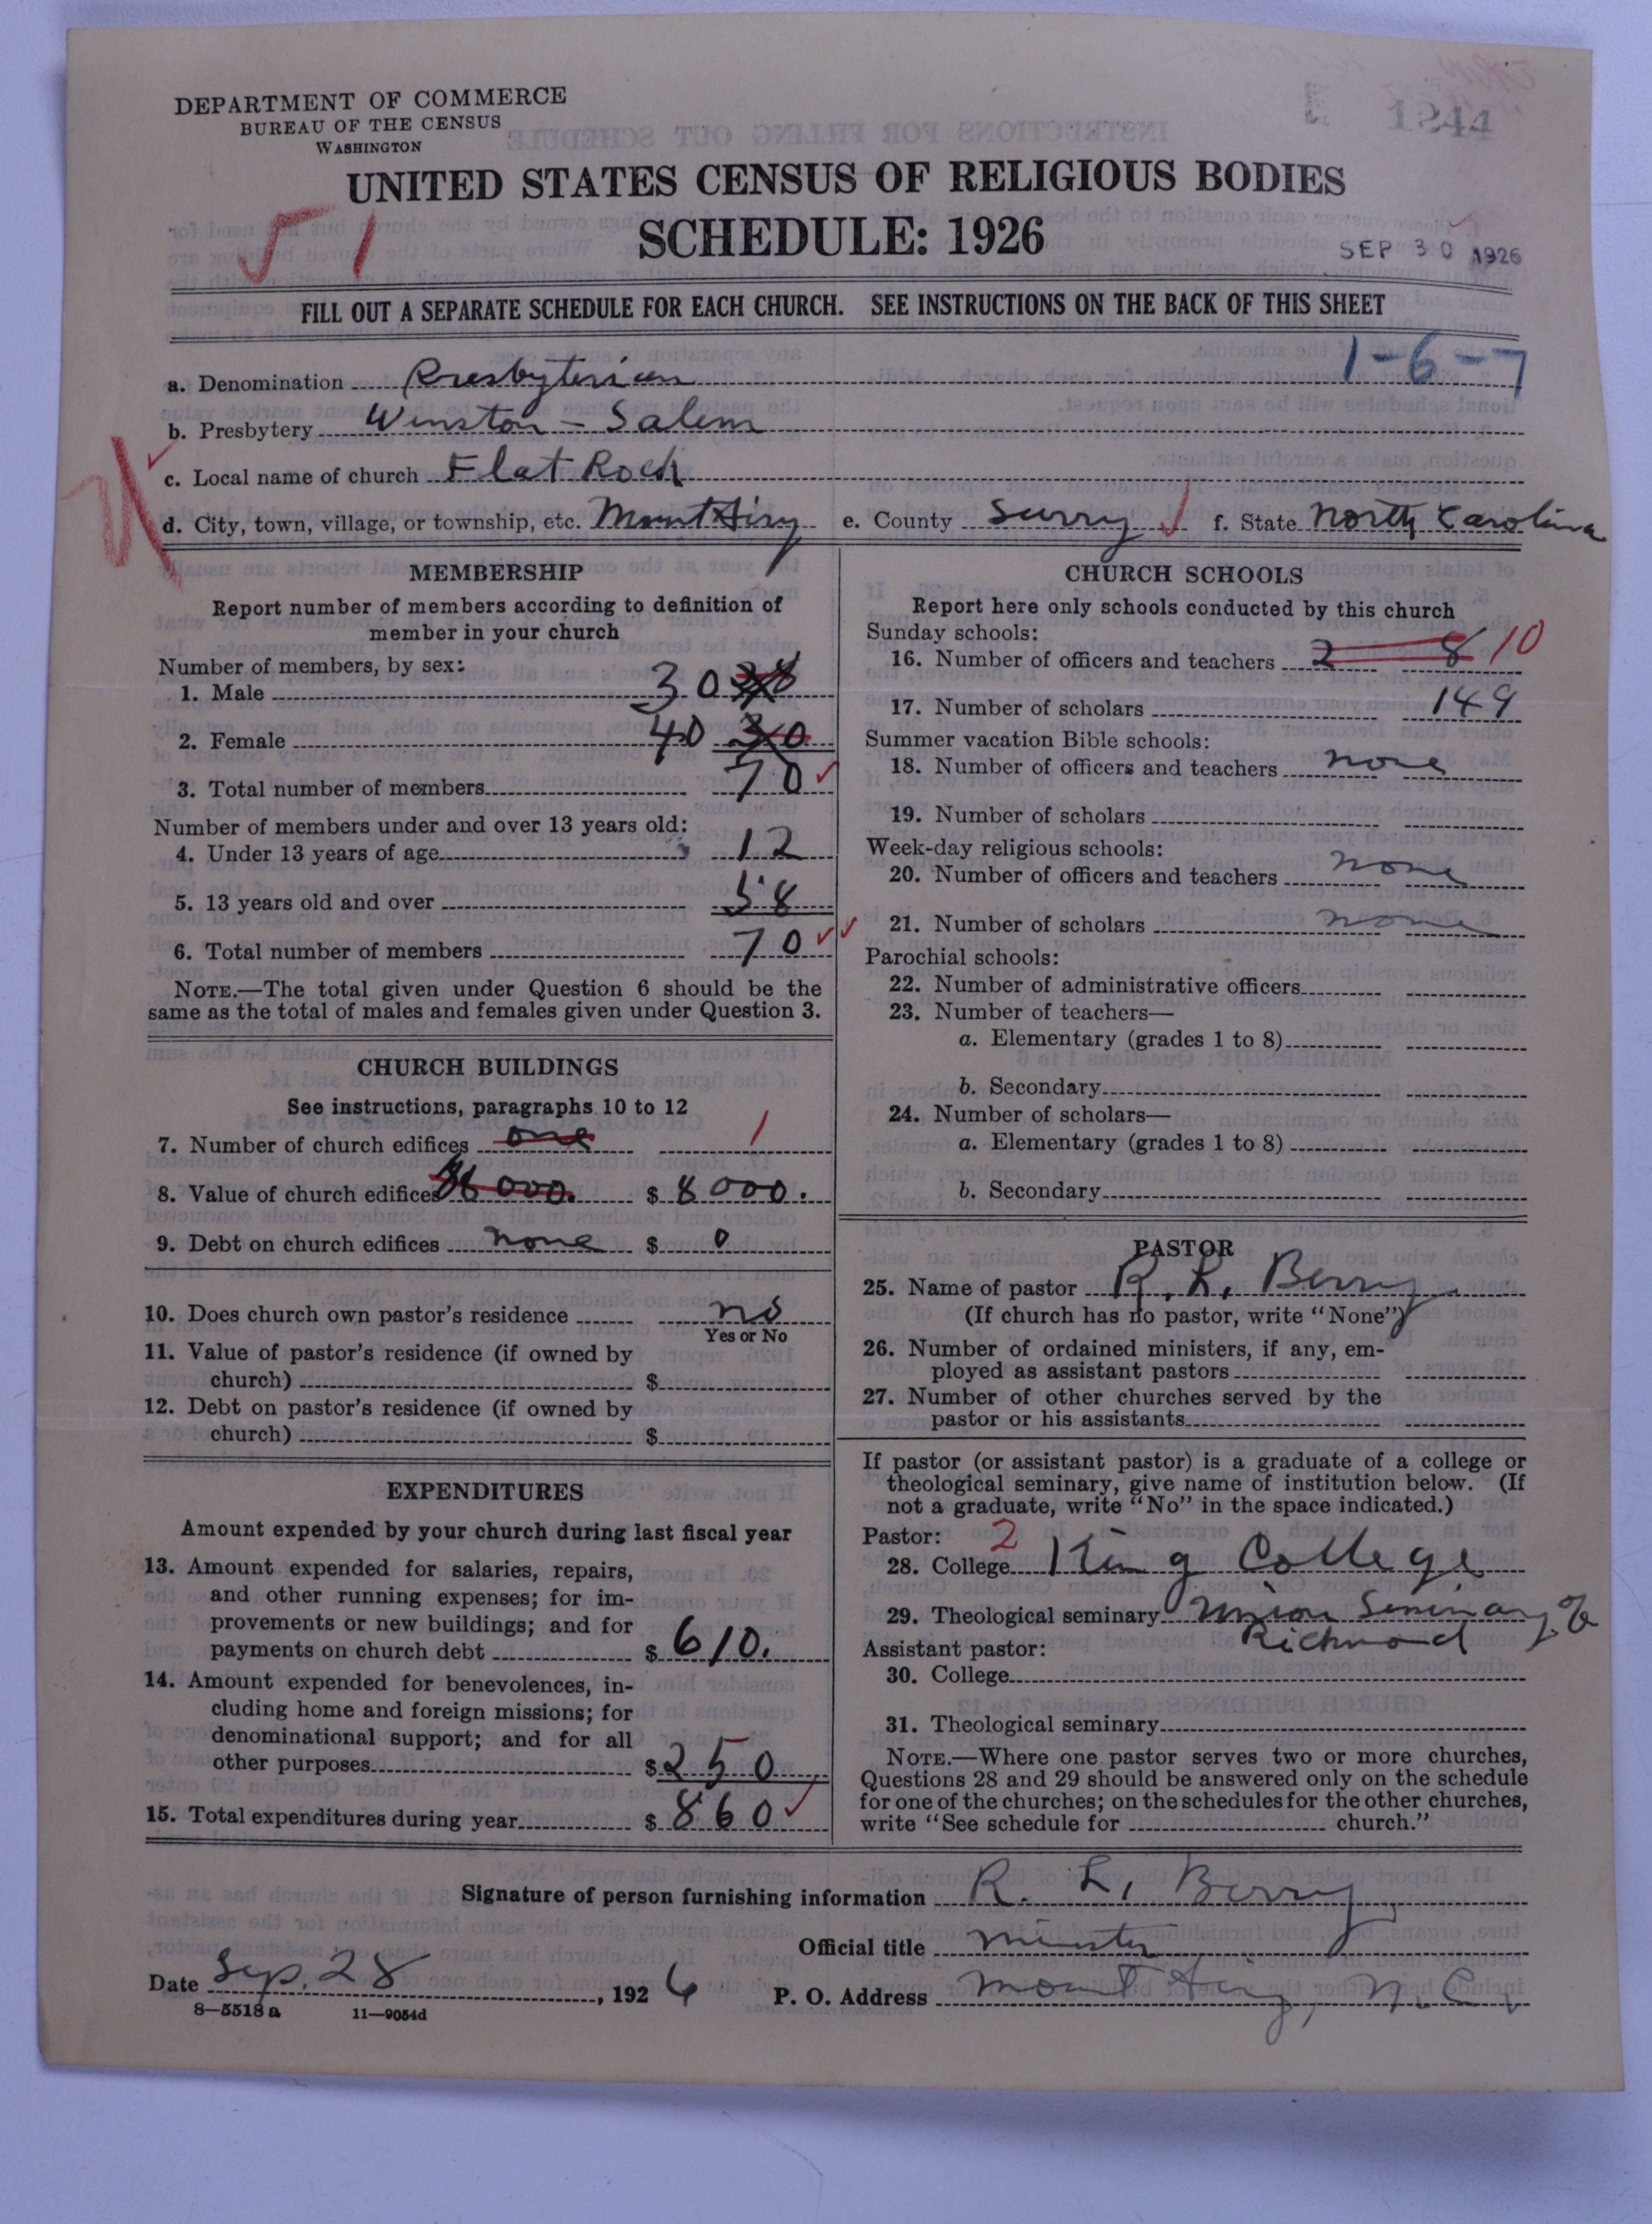 DEPARTMENT OF COMMERCE
BUREAU OF THE CENSUS
WASHINGTON
1244
UNITED STATES CENSUS OF RELIGIOUS BODIES
SCHEDULE: 1926
51
SEP 30 1926
FILL OUT A SEPARATE SCHEDULE FOR EACH CHURCH. SEE INSTRUCTIONS ON THE BACK OF THIS SHEET
1-6-7
a. Denomination Presbyterian
b. Presbytery Winston-Salem
c. Local name of church Flat Rock
d. City, town, village, or township, etc. Mount Airy e. County Surry f. State North Carolina
MEMBERSHIP
Report number of members according to definition of
member in your church
Number of members, by sex:
1. Male 30
2. Female 40 30
3. Total number of members 70
Number of members under and over 13 years old:
4. Under 13 years of age 12
5. 13 years old and over 58
6. Total number of members 70
NOTE.—The total given under Question 6 should be the
same as the total of males and females given under Question 3.
CHURCH BUILDINGS
See instructions, paragraphs 10 to 12
7. Number of church edifices one 1
8. Value of church edifices 000. $ 8000.
9. Debt on church edifices none $ 0
10. Does church own pastor's residence no
Yes or No
11. Value of pastor's residence (if owned by
church) $
12. Debt on pastor's residence (if owned by
church) $
EXPENDITURES
Amount expended by your church during last fiscal year
13. Amount expended for salaries, repairs,
and other running expenses; for im-
provements or new buildings; and for
payments on church debt $ 610.
14. Amount expended for benevolences, in-
cluding home and foreign missions; for
denominational support; and for all
other purposes $ 250
15. Total expenditures during year $ 860
CHURCH SCHOOLS
Report here only schools conducted by this church
Sunday schools:
16. Number of officers and teachers 2 8 10
17. Number of scholars 149
Summer vacation Bible schools:
18. Number of officers and teachers none
19. Number of scholars
Week-day religious schools:
20. Number of officers and teachers none
21. Number of scholars none
Parochial schools:
22. Number of administrative officers
23. Number of teachers—
a. Elementary (grades 1 to 8)
b. Secondary
24. Number of scholars—
a. Elementary (grades 1 to 8)
b. Secondary
PASTOR
25. Name of pastor R. L. Berry
(If church has no pastor, write "None")
26. Number of ordained ministers, if any, em-
ployed as assistant pastors
27. Number of other churches served by the
pastor or his assistants
If pastor (or assistant pastor) is a graduate of a college or
theological seminary, give name of institution below. (If
not a graduate, write "No" in the space indicated.)
Pastor: 2
28. College King College
29. Theological seminary Union Seminary
Richmond
Assistant pastor:
30. College
31. Theological seminary
NOTE.—Where one pastor serves two or more churches,
Questions 28 and 29 should be answered only on the schedule
for one of the churches; on the schedules for the other churches,
write "See schedule for church."
Signature of person furnishing information R. L. Berry
Official title minister
Date Sep. 28, 1926 P. O. Address Mount Airy, N. C.
8-5518a 11-9054d